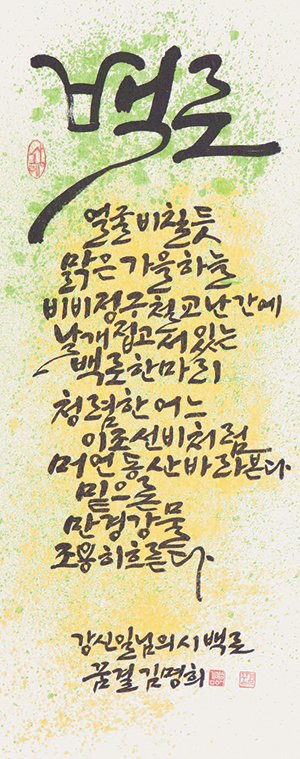 백로
얼굴 비칠 듯
맑은 가을 하늘
비비정 구 철교 난간에
날개 접고 서 있는
백로 한 마리
청렴한 어느
이조 선비처럼
머언 동산 바라본다.
밑으론
만경강 물
조용히 흐른다.
강신일님의 시 백로
꿈결 김명희